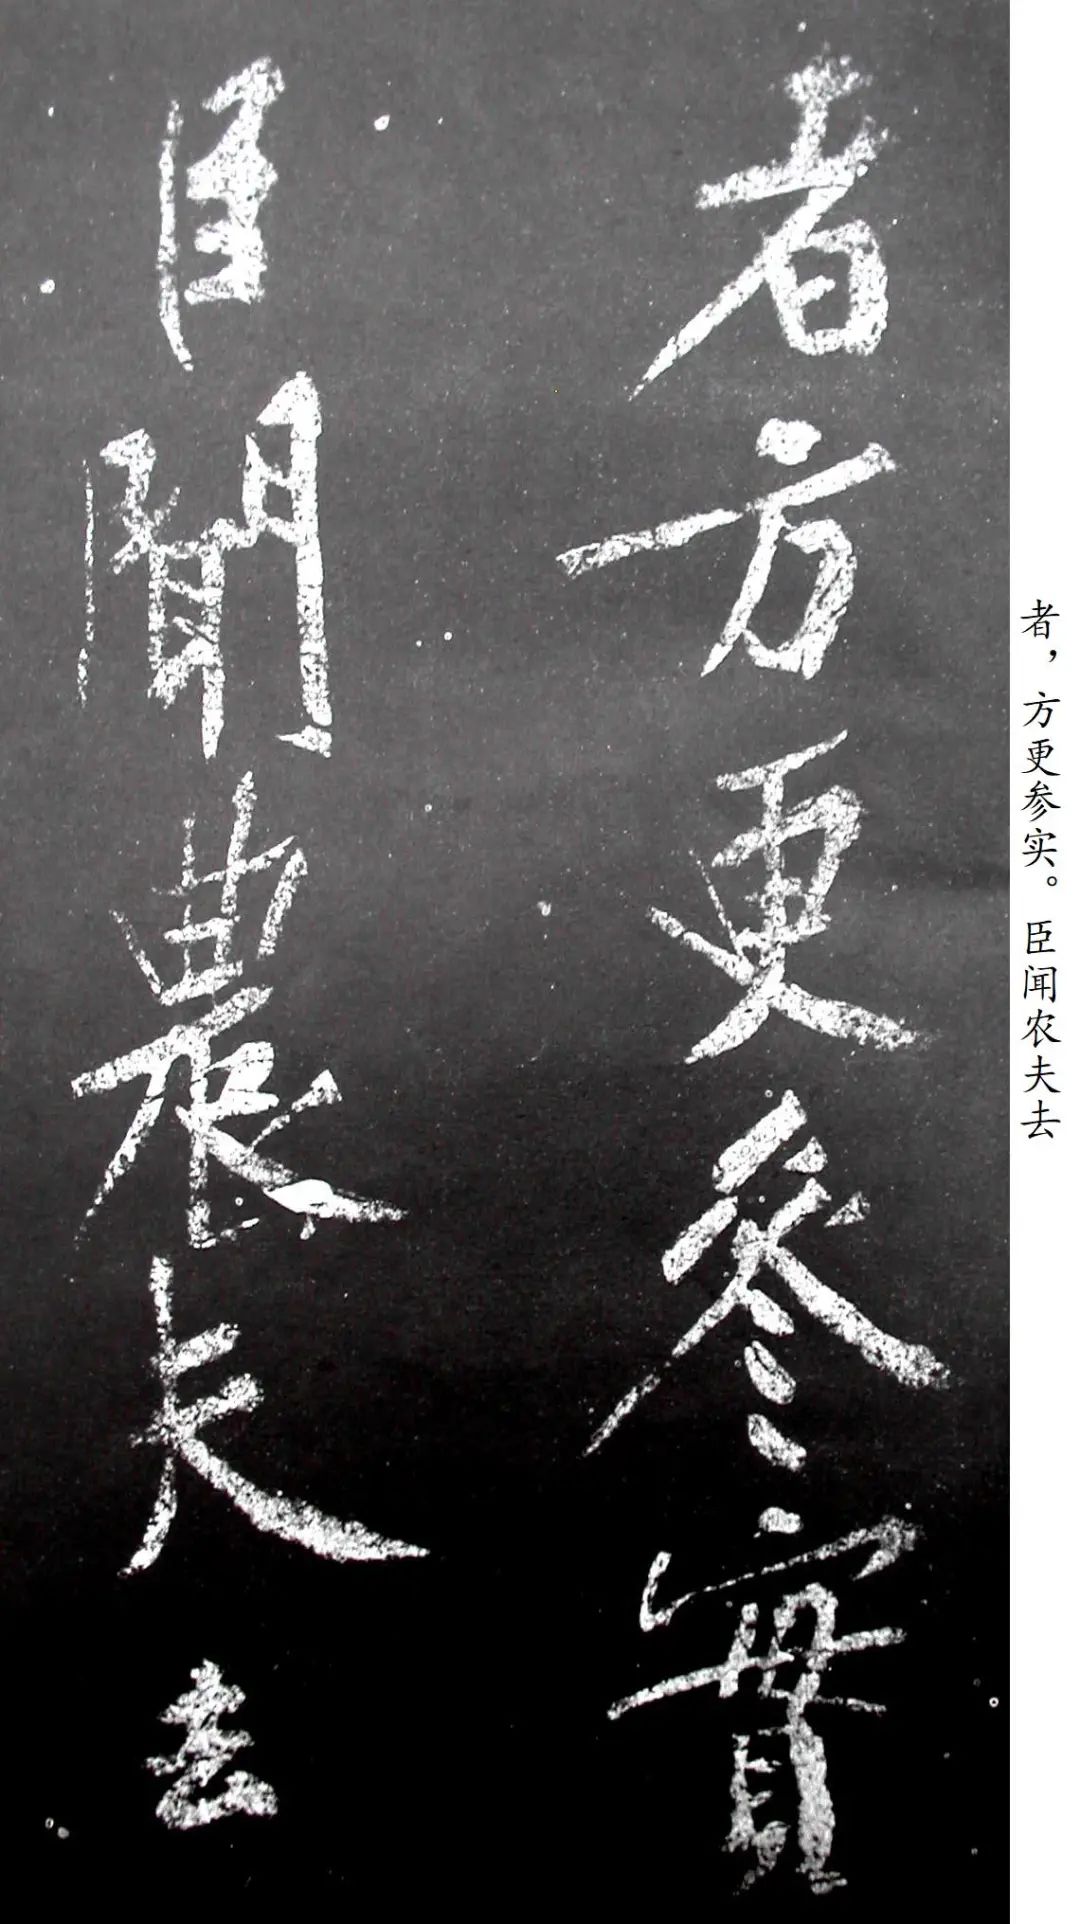 者方更參實
臣聞農夫去
者，方更参实。臣闻农夫去